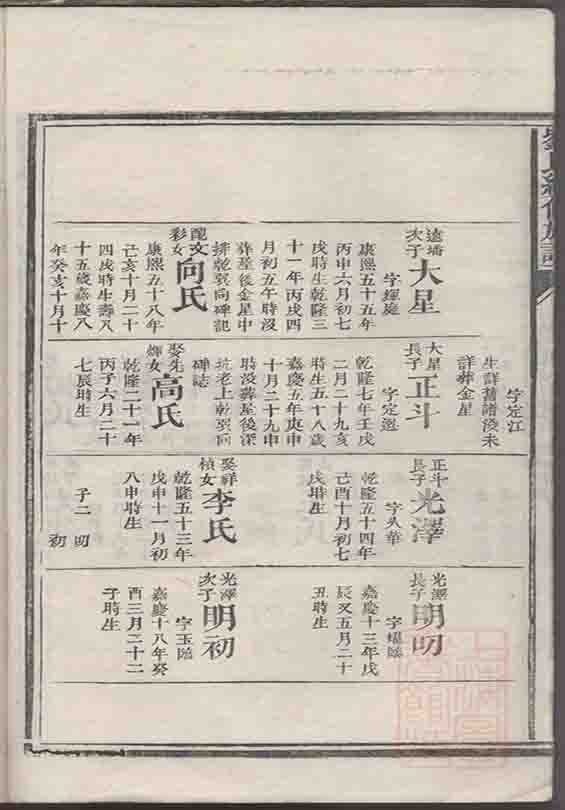 劉氏續修族譜
遠播
次子
大星
字輝庭
康熙五十五年
丙申六月初七
戌時生乾隆三
十一年丙戌四
月初五午時沒
葬屋後金星中
排乾巽向碑記
配文
彩女
向氏
康熙五十八年
己亥十月二十
四戌時生壽八
十五歲嘉慶八
年癸亥十月十
字定江
生詳舊譜沒未
詳葬金星
大星
長子
正斗
字定選
乾隆七年壬戌
二月二十九亥
時生五十八歲
嘉慶五年庚申
十月二十九申
時沒葬屋後深
坑老上乾巽向
碑誌
娶先
煇女
高氏
乾隆二十一年
丙子六月二十
七辰時生
正斗
長子
光澤
字久華
乾隆五十四年
己酉十月初七
戌時生
娶祥
楨女
李氏
乾隆五十三年
戊申十一月初
八申時生
子二 明
初
光澤
長子
明
字耀
嘉慶十三年戊
辰又五月二十
丑時生
光澤
次子
明初
字玉
嘉慶十八年癸
酉三月二十二
子時生